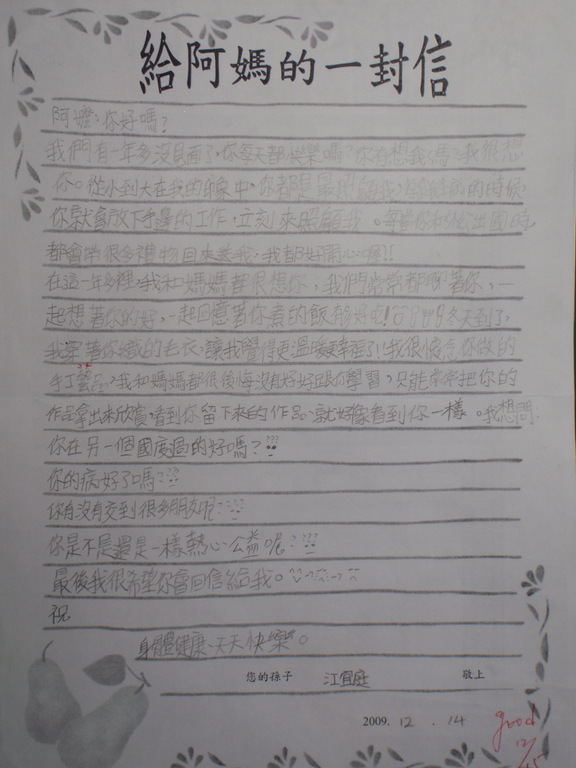 給阿媽的一封信
阿嬤:你好嗎?
我們有一年多沒見面了,你每天都快樂嗎?你有想我嗎?我很想
你。從小到大在我的印象中,你都是最照顧我,的時候,
你就會放下手邊的工作,立刻來照顧我。每當你出國時
都會帶很多禮物回來送我,我都好開心喔!!
在這一年多裡,我和媽媽都很想你,我們常常都著你,一
起想著你的好,一起回憶著你煮的飯有多好吃!冬天到了,
我穿著你織的毛衣,讓我覺得更溫暖幸福了!我很懷念你做的
手工藝品,我和媽媽都很後悔沒有好好跟你學習,只能常常把你的
作品拿出來欣賞,看到你留下來的作品,就好像看到你一樣。我想問:
你在另一個國度過的好嗎?
你的病好了嗎?
你有沒有交到很多朋友呢?
你是不是還是一樣熱心公益呢?
最後我很希望你會回信給我。
祝
身體健康、天天快樂。
您的孫子 江宜庭 敬上
2009. 12 . 14
good
12/15